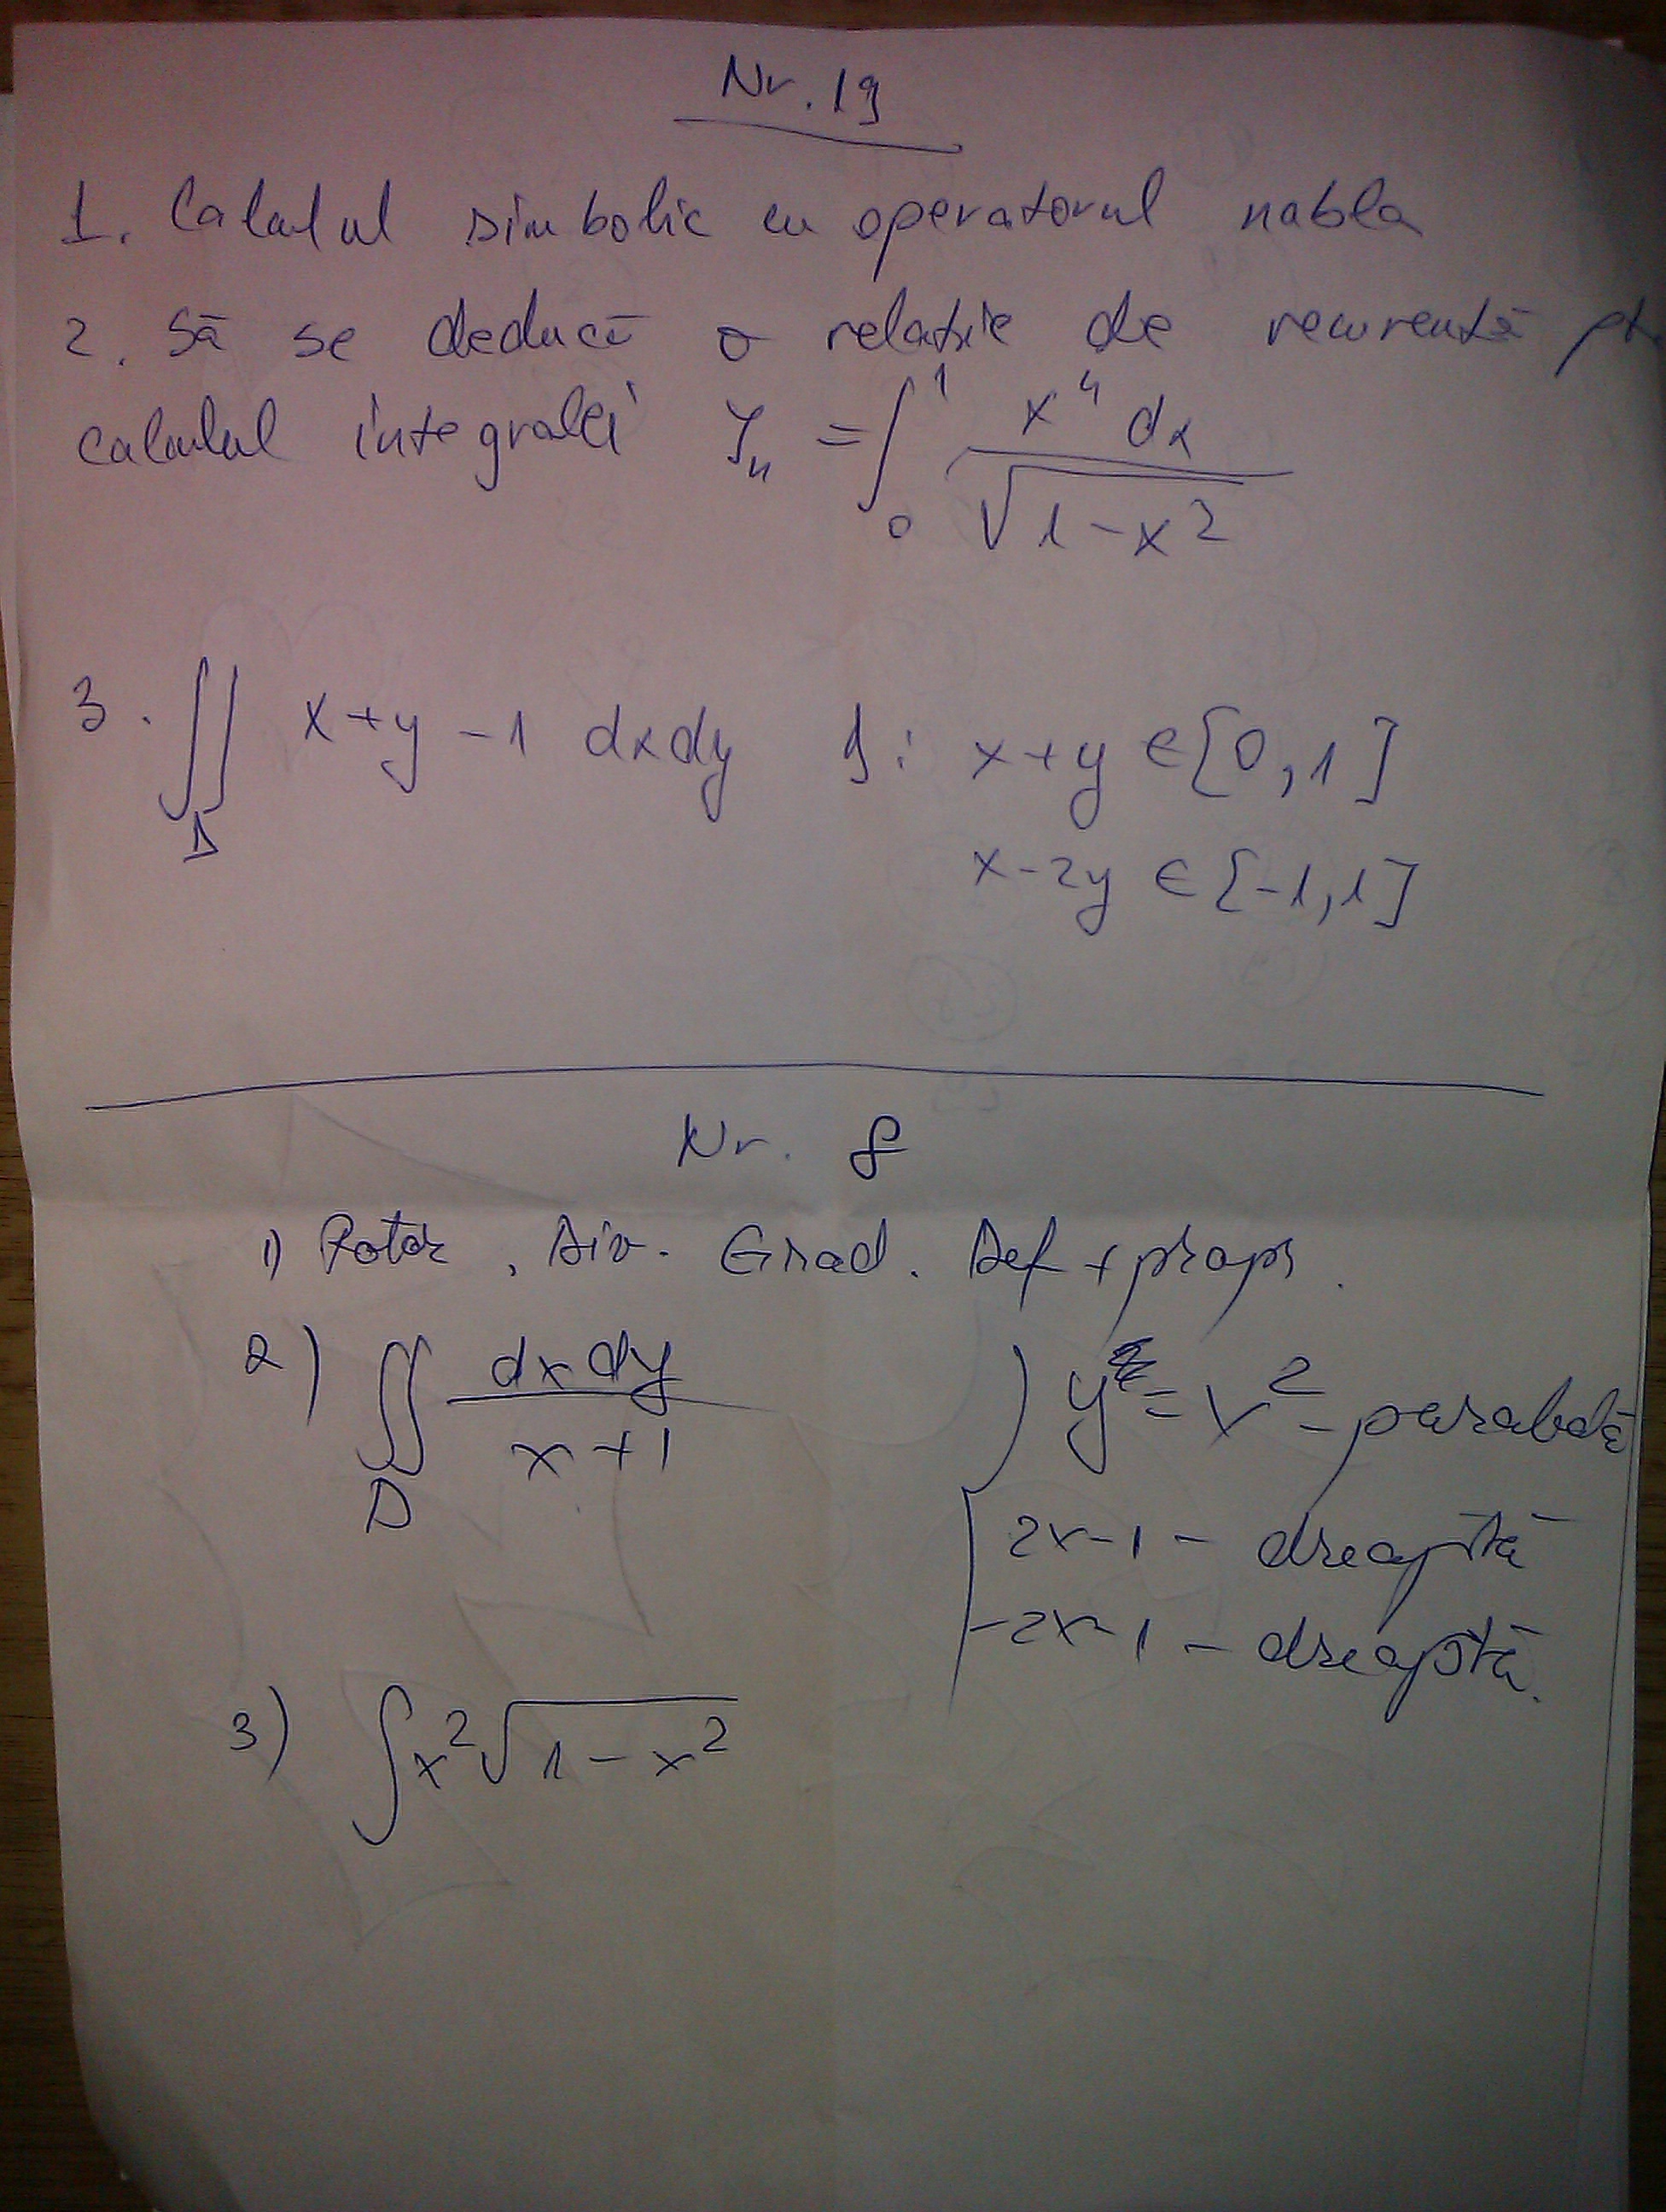 Nr. 19
1. Calculul simbolic cu operatorul nabla
2. Să se deducă o relație de recurență pt.
calculul integralei Yn = ∫₀¹ x⁴ dx / √(1-x²)
3. ∬_D x+y-1 dxdy D: x+y ∈ [0,1]
x-2y ∈ [-1,1]
Nr. 8
1) Rotor, Div. Grad. Def + props.
2) ∬_D dxdy / (x+1) y = x² - parabolă
2x-1 - dreaptă
-2x-1 - dreaptă.
3) ∫x²√(1-x²)